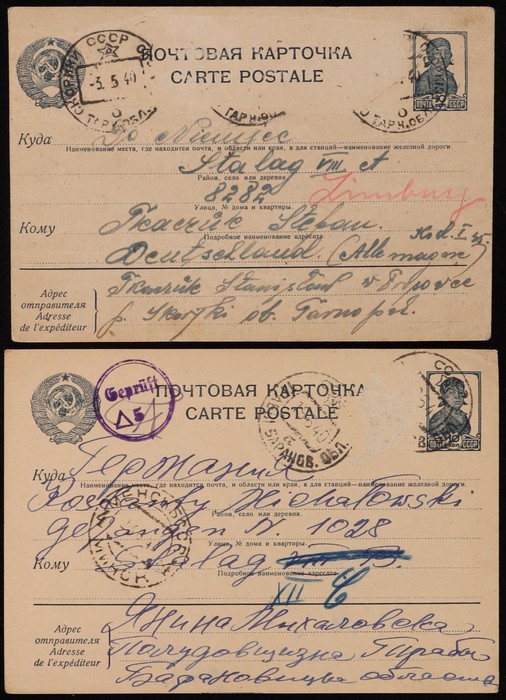 СССР
3.5.40
ТАРН.ОБЛ.
ПОЧТОВАЯ КАРТОЧКА
CARTE POSTALE
ПОЧТА СССР
Куда
Do Niemiec
Наименование места, где находится почта, и области или края, а для станций—наименование железной дороги.
Stalag VIII A
Район, село или деревня.
8282
Limburg
Улица, № дома и квартиры.
Кому
Tkaczuk Stefan.
Подробное наименование адресата
Deutschland. (Allemagne)
Адрес отправителя
Adresse de l'expéditeur
Tkaczuk Stanisław
ob. Tarnopol.
Geprüft
5
ПОЧТОВАЯ КАРТОЧКА
CARTE POSTALE
БАРАНОВ. ОБЛ.
Куда
Германия
Наименование места, где находится почта, и области или края, а для станций—наименование железной дороги.
Michałowski
Район, село или деревня.
gefangen N. 1028
Улица, № дома и квартиры.
Кому
Stalag
Подробное наименование адресата
XII C
МИНСК
Адрес отправителя
Adresse de l'expéditeur
Янина Михаловска
Барановицка область